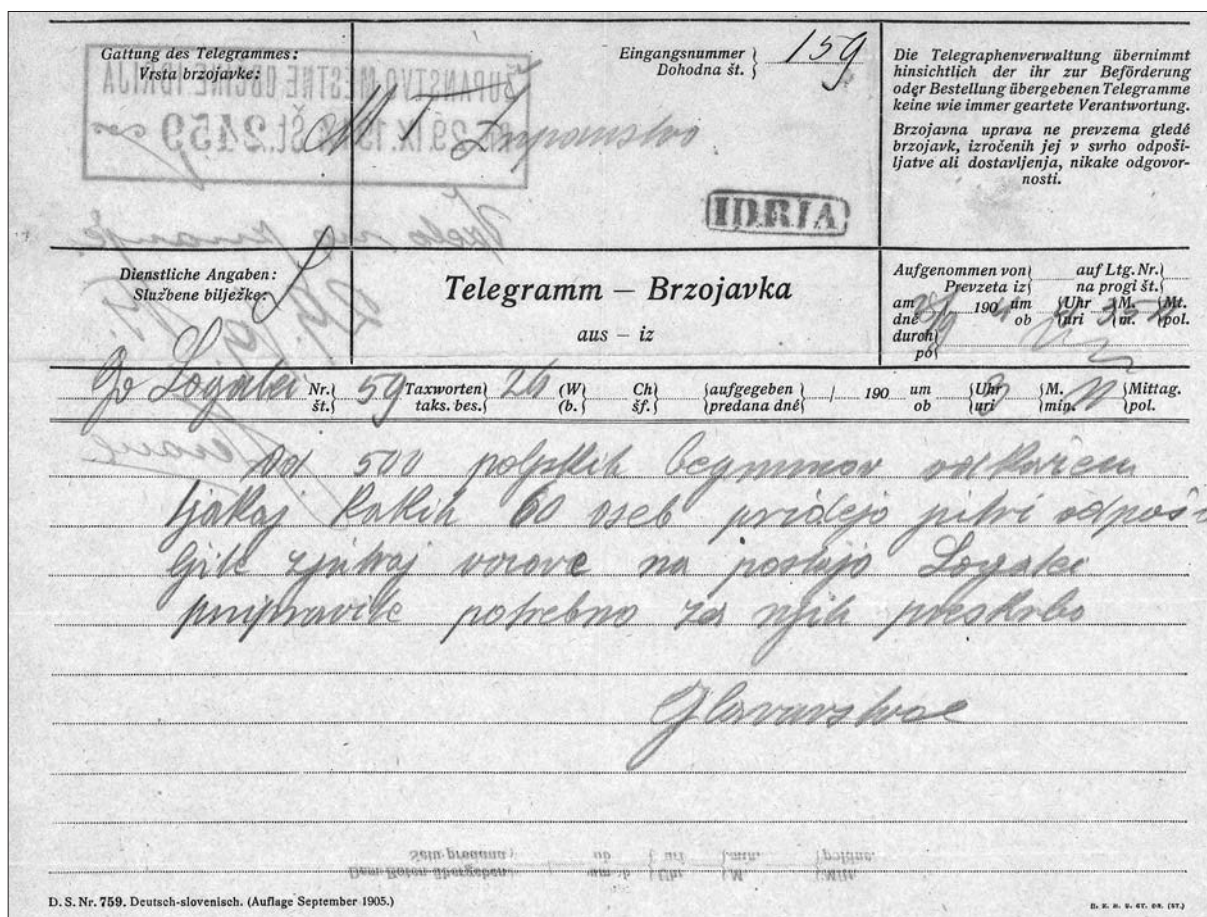 Gattung des Telegrammes:
Vrsta brzojavke:
Županstvo
Eingangsnummer
Dohodna št.
159
IDRIA
Die Telegraphenverwaltung übernimmt
hinsichtlich der ihr zur Beförderung
oder Bestellung übergebenen Telegramme
keine wie immer geartete Verantwortung.
Brzojavna uprava ne prevzema gledé
brzojavk, izročenih jej v svrho odpoši-
ljatve ali dostavljenja, nikake odgovor-
nosti.
ŽUPANSTVO MESTNE OBČINE IDRIJA
29. IX. ŠT. 2459
Dienstliche Angaben:
Službene bilježke:
Telegramm – Brzojavka
aus – iz
Aufgenommen von auf Ltg. Nr.
Prevzeta iz na progi št.
am 190 um Uhr M. Mt.
dné ob uri m. pol.
durch
po
Logatec Nr. 59 Taxworten 26 (W Ch aufgegeben / 190 um Uhr M. Mittag.
št. taks. bes. (b. šf. predana dné ob uri 8 min. pol.
od 500 poljskih begunnov odkazicu
tjakaj kakih 60 oseb pridejo jutri odpoš
ljite zjutraj vozove na postajo Logatec
pripravite potrebno za njih preskrbo
Glavarstvo
D. S. Nr. 759. Deutsch-slovenisch. (Auflage September 1905.)